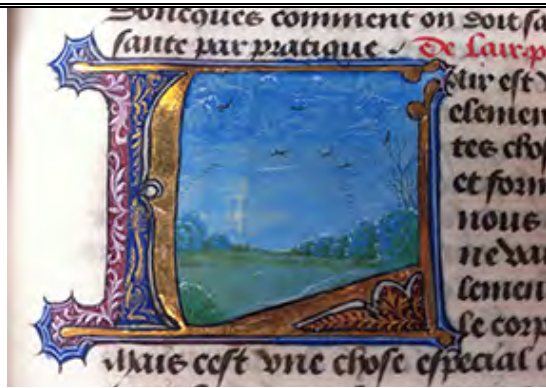 Doncques comment on doit sa
sante par pratique De lair
air est
elemen
tes chos
et form
nous
ne vau
lemen
le corp
Mais cest vne chose especial